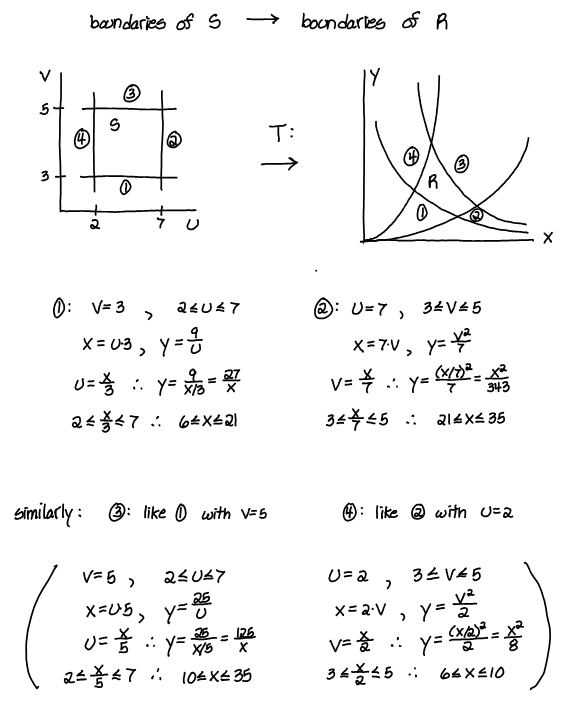 boundaries of S → boundaries of R
V
5
3
2
7
U
③
S
④
②
①
T:
→
Y
④
③
R
①
②
X
①: V=3 , 2≤U≤7
X=U·3 , Y=9/U
U=X/3 ∴ Y=9/(X/3)=27/X
2≤X/3≤7 ∴ 6≤X≤21
②: U=7 , 3≤V≤5
X=7·V , Y=V²/7
V=X/7 ∴ Y=(X/7)²/7=X²/343
3≤X/7≤5 ∴ 21≤X≤35
similarly: ③: like ① with V=5
④: like ② with U=2
V=5 , 2≤U≤7
X=U·5 , Y=25/U
U=X/5 ∴ Y=25/(X/5)=125/X
2≤X/5≤7 ∴ 10≤X≤35
U=2 , 3≤V≤5
X=2·V , Y=V²/2
V=X/2 ∴ Y=(X/2)²/2=X²/8
3≤X/2≤5 ∴ 6≤X≤10